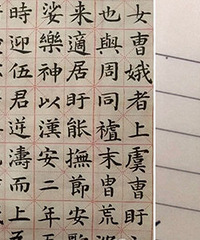 女曹娥者上虞曹盱
也與周同末胄荒
来適居盱能撫節安
娑樂神以漢安二年五
時迎伍君逆濤而上